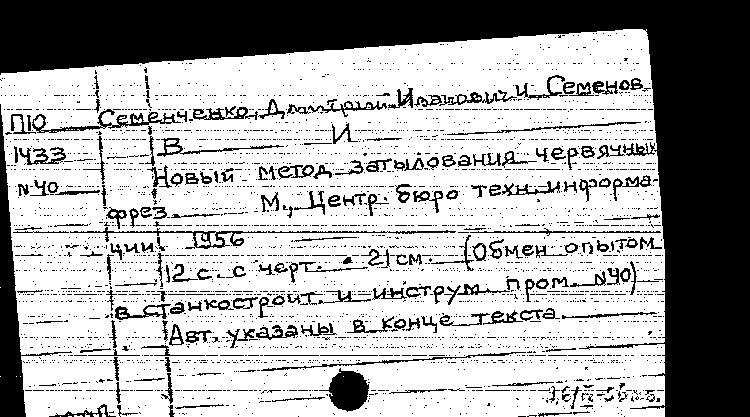 ПЮ Семенченко, Дмитрий Иванович и Семенов
1433 В И
N40 Новый метод затылования червячных
фрез. М., Центр. бюро техн. информа-
ции. 1956
12 с. с черт. 21 см. (Обмен опытом
в станкостроит. и инструм. пром. N40)
Авт. указаны в конце текста.